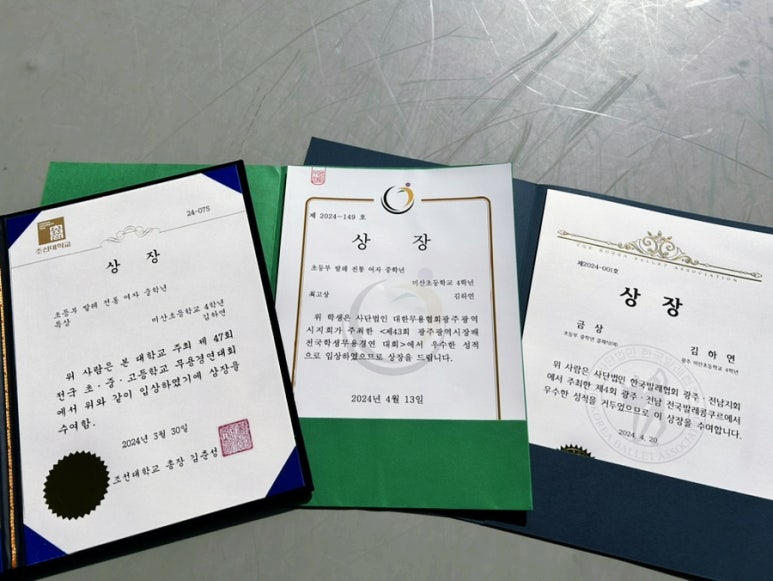 24-075
조선대학교
상 장
초등부 발레 전통 여자 중학년
특상
미산초등학교 4학년
김하연
위 사람은 본 대학교 주최 제 47회
전국 초·중·고등학교 무용경연대회
에서 위와 같이 입상하였기에 상장을
수여함.
2024년 3월 30일
조선대학교 총장 김춘성
제 2024-149 호
상 장
초등부 발레 전통 여자 중학년
미산초등학교 4학년
최고상
김하연
위 학생은 사단법인 대한무용협회광주광역
시지회가 주최한 <제43회 광주광역시장배
전국학생무용경연 대회>에서 우수한 성적
으로 입상하였으므로 상장을 드립니다.
2024년 4월 13일
THE KOREA BALLET ASSOCIATION
제2024-001호
상 장
금 상
초등부 중학년 클래식(여)
김 하 연
광주 미산초등학교 4학년
위 사람은 사단법인 한국발레협회 광주·전남지회
에서 주최한 제4회 광주·전남 전국발레콩쿠르에서
우수한 성적을 거두었으므로 이 상장을 수여합니다.
2024. 4. 20
KOREA BALLET ASSOCIATION